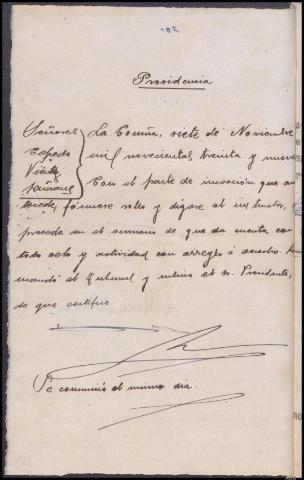 Providencia
Señores La Coruña, siete de Noviembre
Cepeda mil novecientos treinta y nueve
Viñas
Con el parte de incoación que an
tecede, fórmese rollo y digase al instructor,
proceda en el sumario de que da cuenta con
todo celo y actividad con arreglo á derecho. Lo
mandó el Tribunal y rubrica el Sr. Presidente,
de que certifico.
Se comunicó el mismo dia.